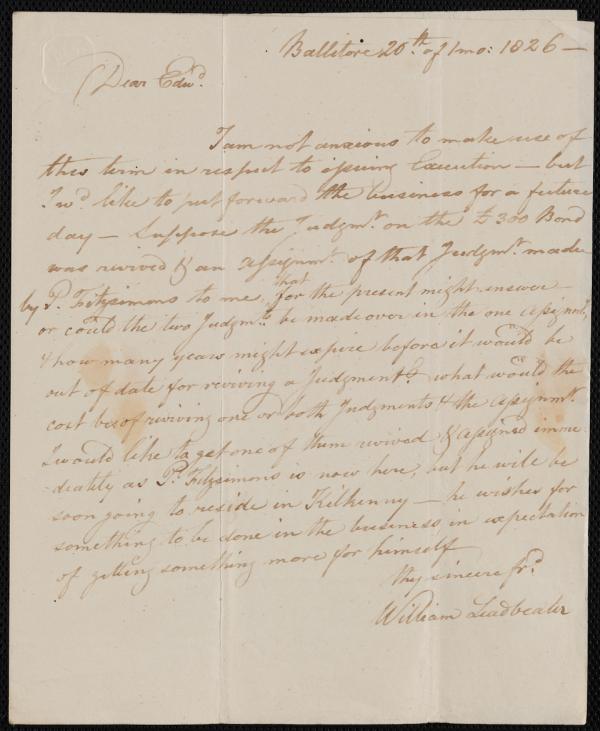 Ballitore 20th. of 1mo: 1826 —
Dear Edwd.
I am not anxious to make use of
this term in respect to issuing Execution — but
I wd. like to put forward the business for a future
day — Suppose the Judgmt. on the £300 Bond
was revived & an assignmt. of that Judgmt. made
by P. Fitzsimons to me, that for the present might answer —
or could the two Judgmts. be made over in the one assignmt.,
& how many years might expire before it would be
out of date for reviving a Judgment? what would the
cost be of reviving one or both Judgments & the assignmt.
I would like to get one of them revived & assigned imme
diately as P. Fitzsimons is now here, but he will be
soon going to reside in Kilkenny — he wishes for
something to be done in the business, in expectation
of getting something more for himself
thy sincere frd.
William Leadbeater